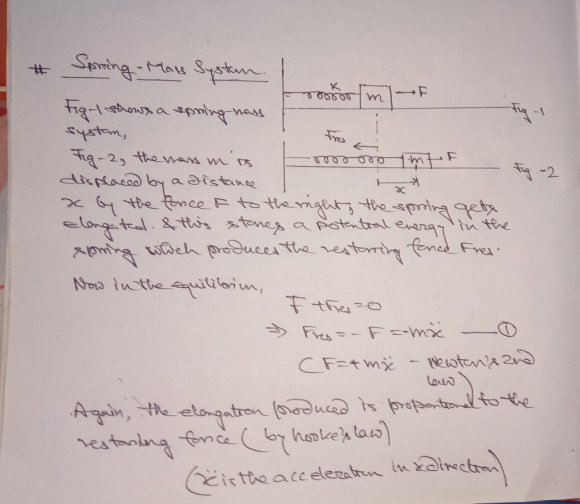 # Spring-Mass System
K
m
→F
Fig-1
Fig-1 shows a spring-mass
system,
Fres
m
F
x
Fig-2
Fig-2, the mass m is
displaced by a distance
x by the force F to the right, the spring gets
elongated. & this stores a potential energy in the
spring which produces the restoring force Fres.
Now in the equilibrim,
F + Fres = 0
⇒ Fres = - F = -mẍ —— ①
(F = + mẍ - Newton's 2nd
law)
Again, the elongation produced is proportional to the
restoring force (by hooke's law)
(ẍ is the acceleration in x direction)